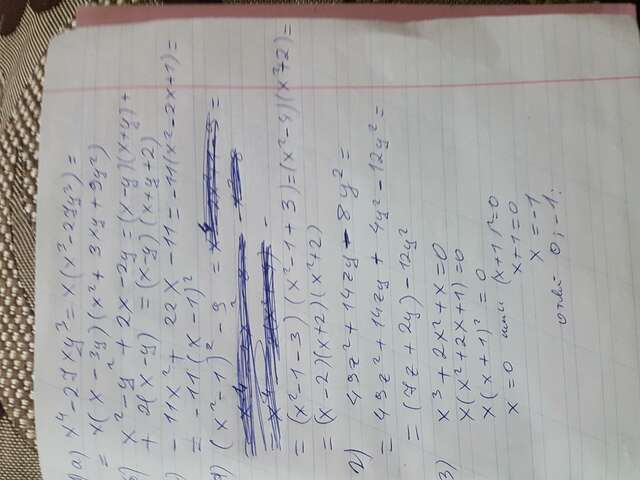 а) x⁴ - 27xy³ = x(x³ - 27y³) =
= x(x - 3y)(x² + 3xy + 9y²)
б) x² - y² + 2x - 2y = (x - y)(x + y) +
+ 2(x - y) = (x - y)(x + y + 2)
) - 11x² + 22x - 11 = -11(x² - 2x + 1) =
= -11(x - 1)²
(x² - 1)² - 9 =
= (x² - 1 - 3)(x² - 1 + 3) = (x² - 4)(x² + 2) =
= (x - 2)(x + 2)(x² + 2)
2) 49z² + 14zy - 8y² =
= 49z² + 14zy + 4y² - 12y² =
= (7z + 2y) - 12y²
3) x³ + 2x² + x = 0
x(x² + 2x + 1) = 0
x(x + 1)² = 0
x = 0 или (x + 1)² = 0
x + 1 = 0
x = -1
ответ 0; -1.